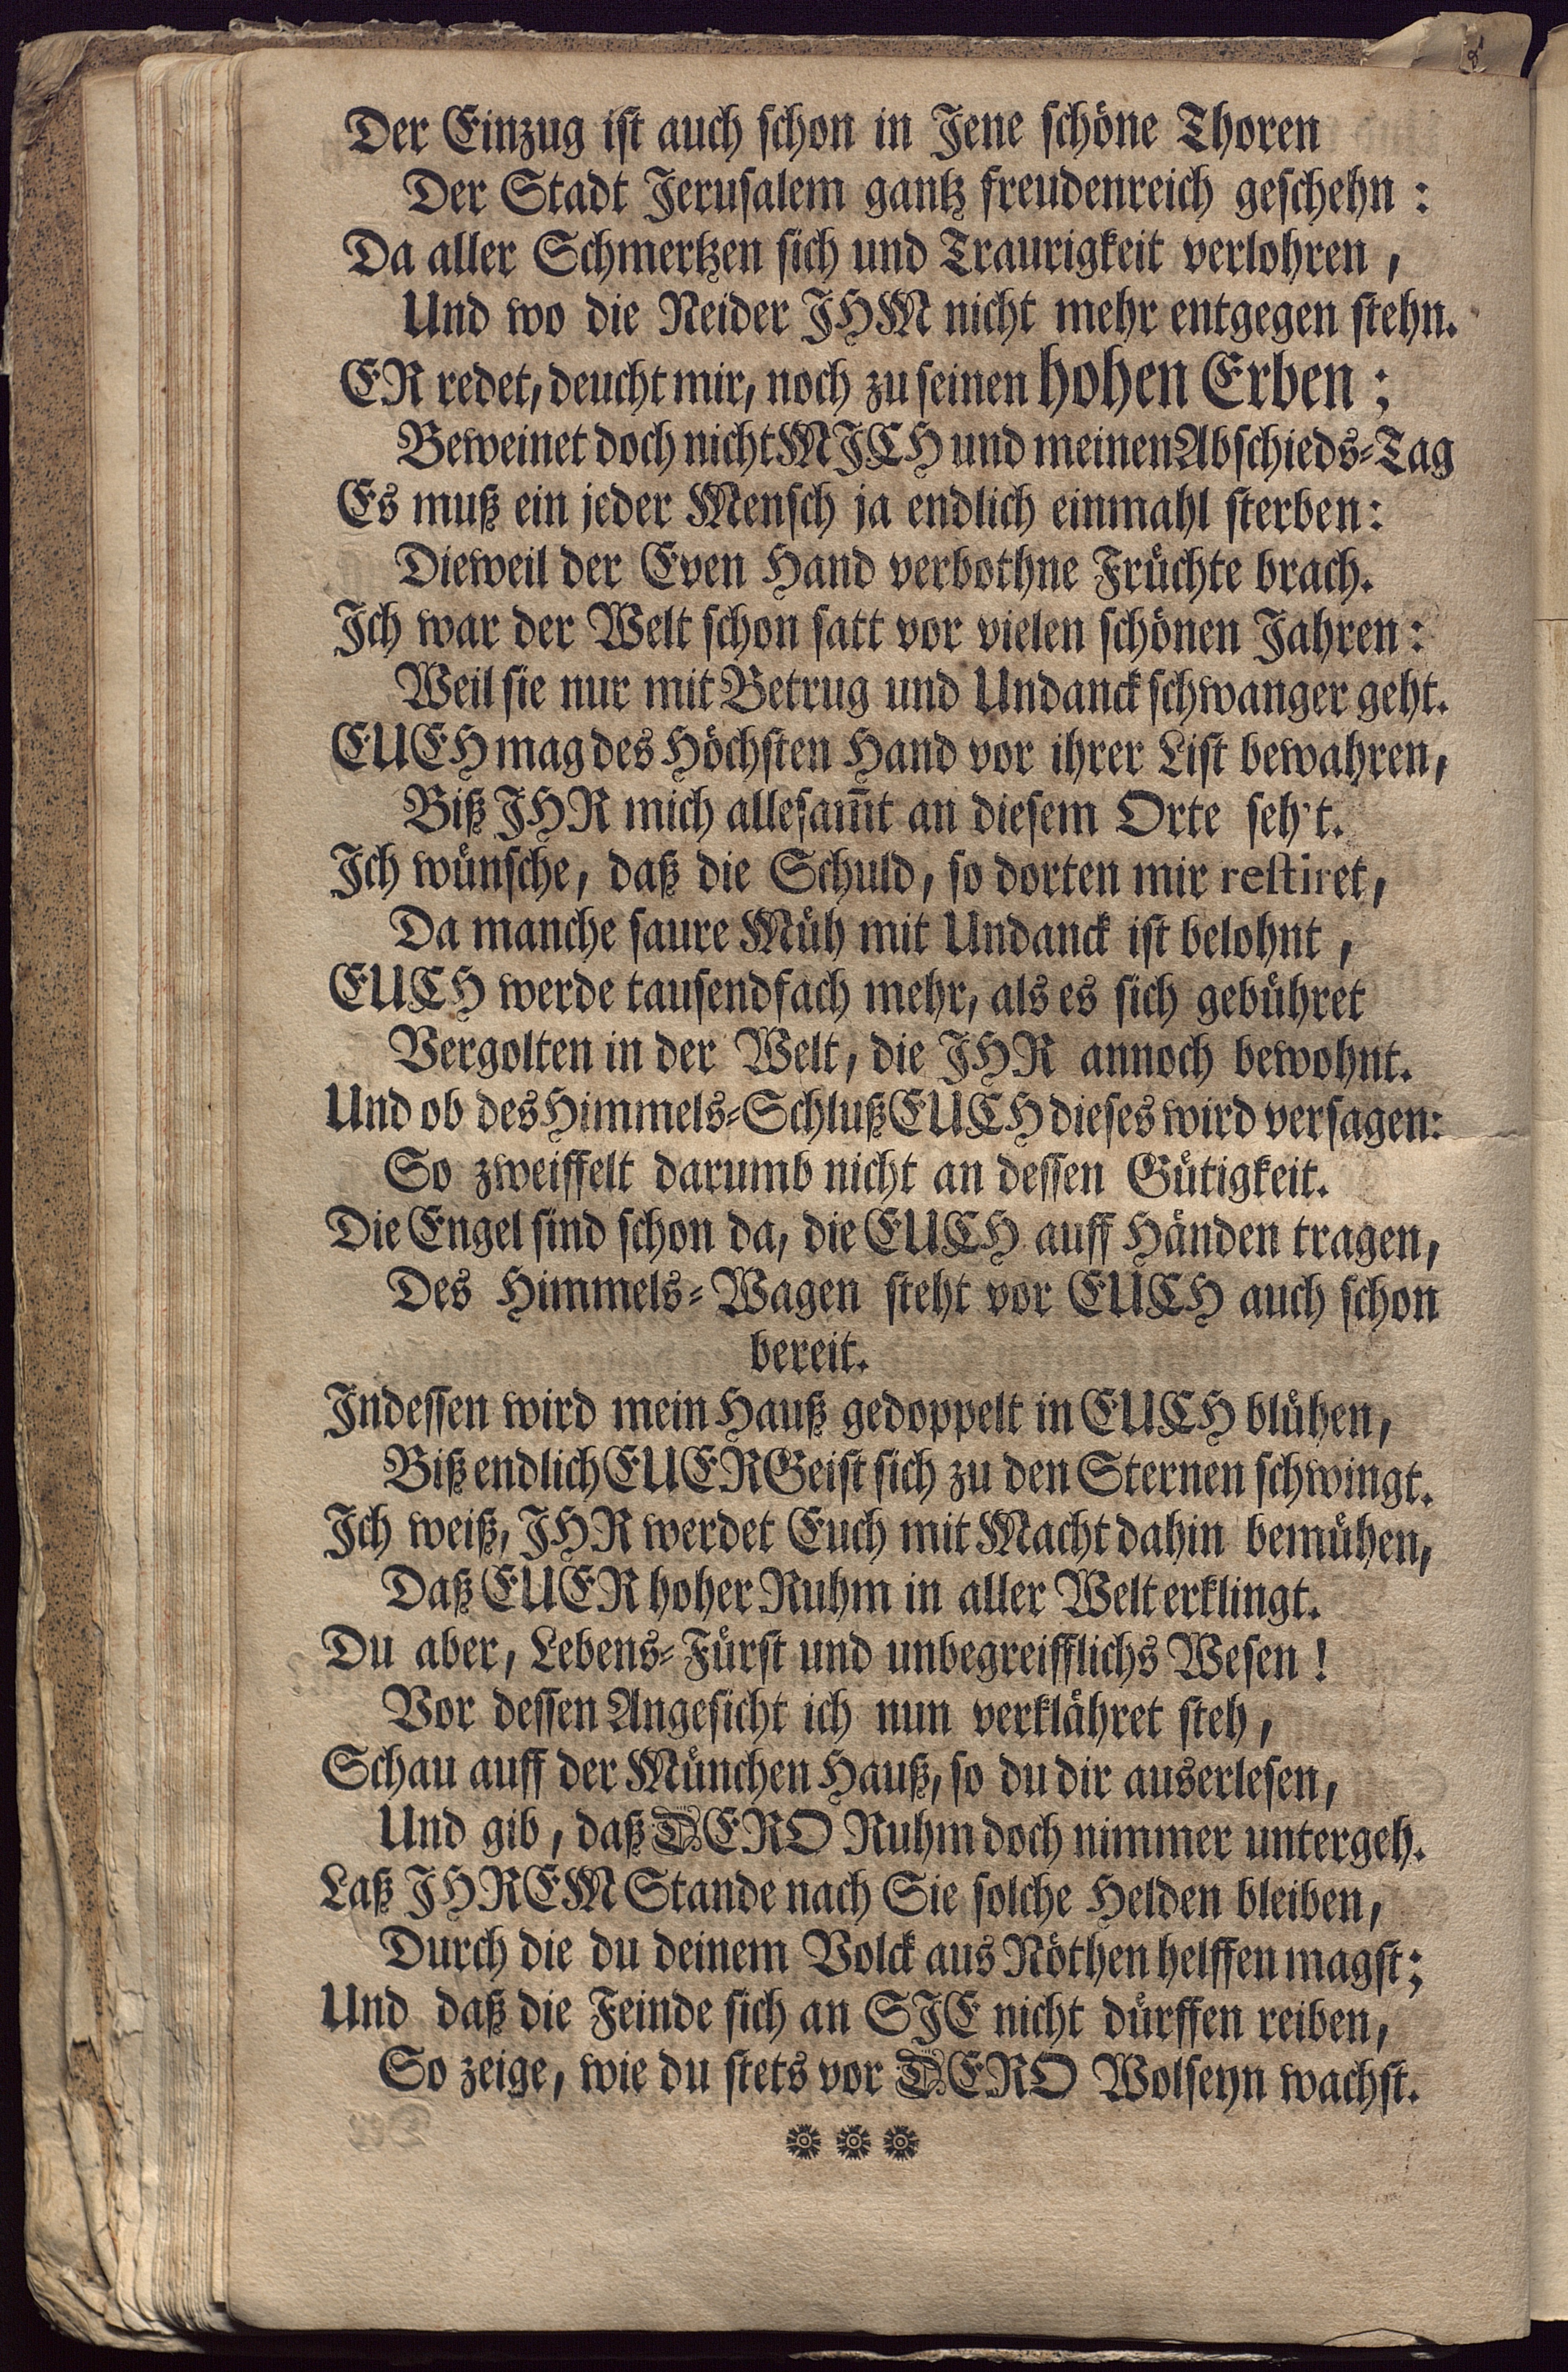 Der Einzug ist auch schon in Jene schöne Thoren
Der Stadt Jerusalem gantz freudenreich geschehn :
Da aller Schmertzen sich und Traurigkeit verlohren ,
Und wo die Neider JHM nicht mehr entgegen stehn.
ER redet, deucht mir, noch zu seinen hohen Erben ;
Beweinet doch nicht MJCH und meinen Abschieds-Tag
Es muß ein jeder Mensch ja endlich einmahl sterben:
Dieweil der Even Hand verbothne Früchte brach.
Jch war der Welt schon satt vor vielen schönen Jahren :
Weil sie nur mit Betrug und Undanck schwanger geht.
EUCH mag des Höchsten Hand vor ihrer List bewahren,
Biß JHR mich allesam̃t an diesem Orte seh't.
Jch wünsche, daß die Schuld, so dorten mir restiret,
Da manche saure Müh mit Undanck ist belohnt ,
EUCH werde tausendfach mehr, als es sich gebühret
Vergolten in der Welt, die JHR annoch bewohnt.
Und ob des Himmels-Schluß EUCH dieses wird versagen:
So zweiffelt darumb nicht an dessen Gütigkeit.
Die Engel sind schon da, die EUCH auff Händen tragen,
Des Himmels-Wagen steht vor EUCH auch schon
bereit.
Jndessen wird mein Hauß gedoppelt in EUCH blühen,
Biß endlich EUER Geist sich zu den Sternen schwingt.
Jch weiß, JHR werdet Euch mit Macht dahin bemühen,
Daß EUER hoher Ruhm in aller Welt erklingt.
Du aber, Lebens-Fürst und unbegreifflichs Wesen !
Vor dessen Angesicht ich nun verklähret steh ,
Schau auff der München Hauß, so du dir auserlesen,
Und gib , daß DERO Ruhm doch nimmer untergeh.
Laß JHREM Stande nach Sie solche Helden bleiben,
Durch die du deinem Volck aus Nöthen helffen magst;
Und daß die Feinde sich an SJE nicht dürffen reiben,
So zeige, wie du stets vor DERO Wolseyn wachst.